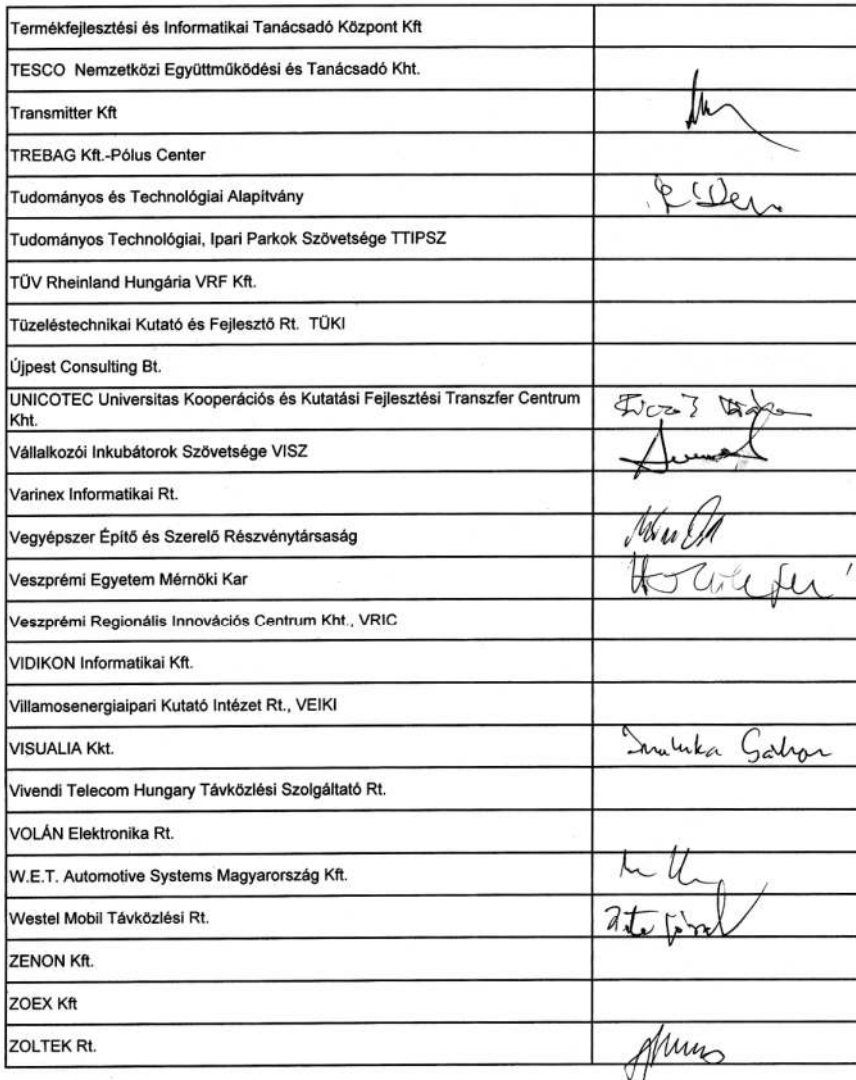 Termékfejlesztési és Informatikai Tanácsadó Központ Kft
TESCO Nemzetközi Együttműködési és Tanácsadó Kht.
Transmitter Kft
TREBAG Kft.-Pólus Center
Tudományos és Technológiai Alapítvány
Tudományos Technológiai, Ipari Parkok Szövetsége TTIPSZ
TÜV Rheinland Hungária VRF Kft.
Tüzeléstechnikai Kutató és Fejlesztő Rt. TÜKI
Újpest Consulting Bt.
UNICOTEC Universitas Kooperációs és Kutatási Fejlesztési Transzfer Centrum
Kht.
Vállalkozói Inkubátorok Szövetsége VISZ
Varinex Informatikai Rt.
Vegyépszer Építő és Szerelő Részvénytársaság
Veszprémi Egyetem Mérnöki Kar
Veszprémi Regionális Innovációs Centrum Kht., VRIC
VIDIKON Informatikai Kft.
Villamosenergiaipari Kutató Intézet Rt., VEIKI
VISUALIA Kkt. Gábor
Vivendi Telecom Hungary Távközlési Szolgáltató Rt.
VOLÁN Elektronika Rt.
W.E.T. Automotive Systems Magyarország Kft.
Westel Mobil Távközlési Rt.
ZENON Kft.
ZOEX Kft
ZOLTEK Rt.